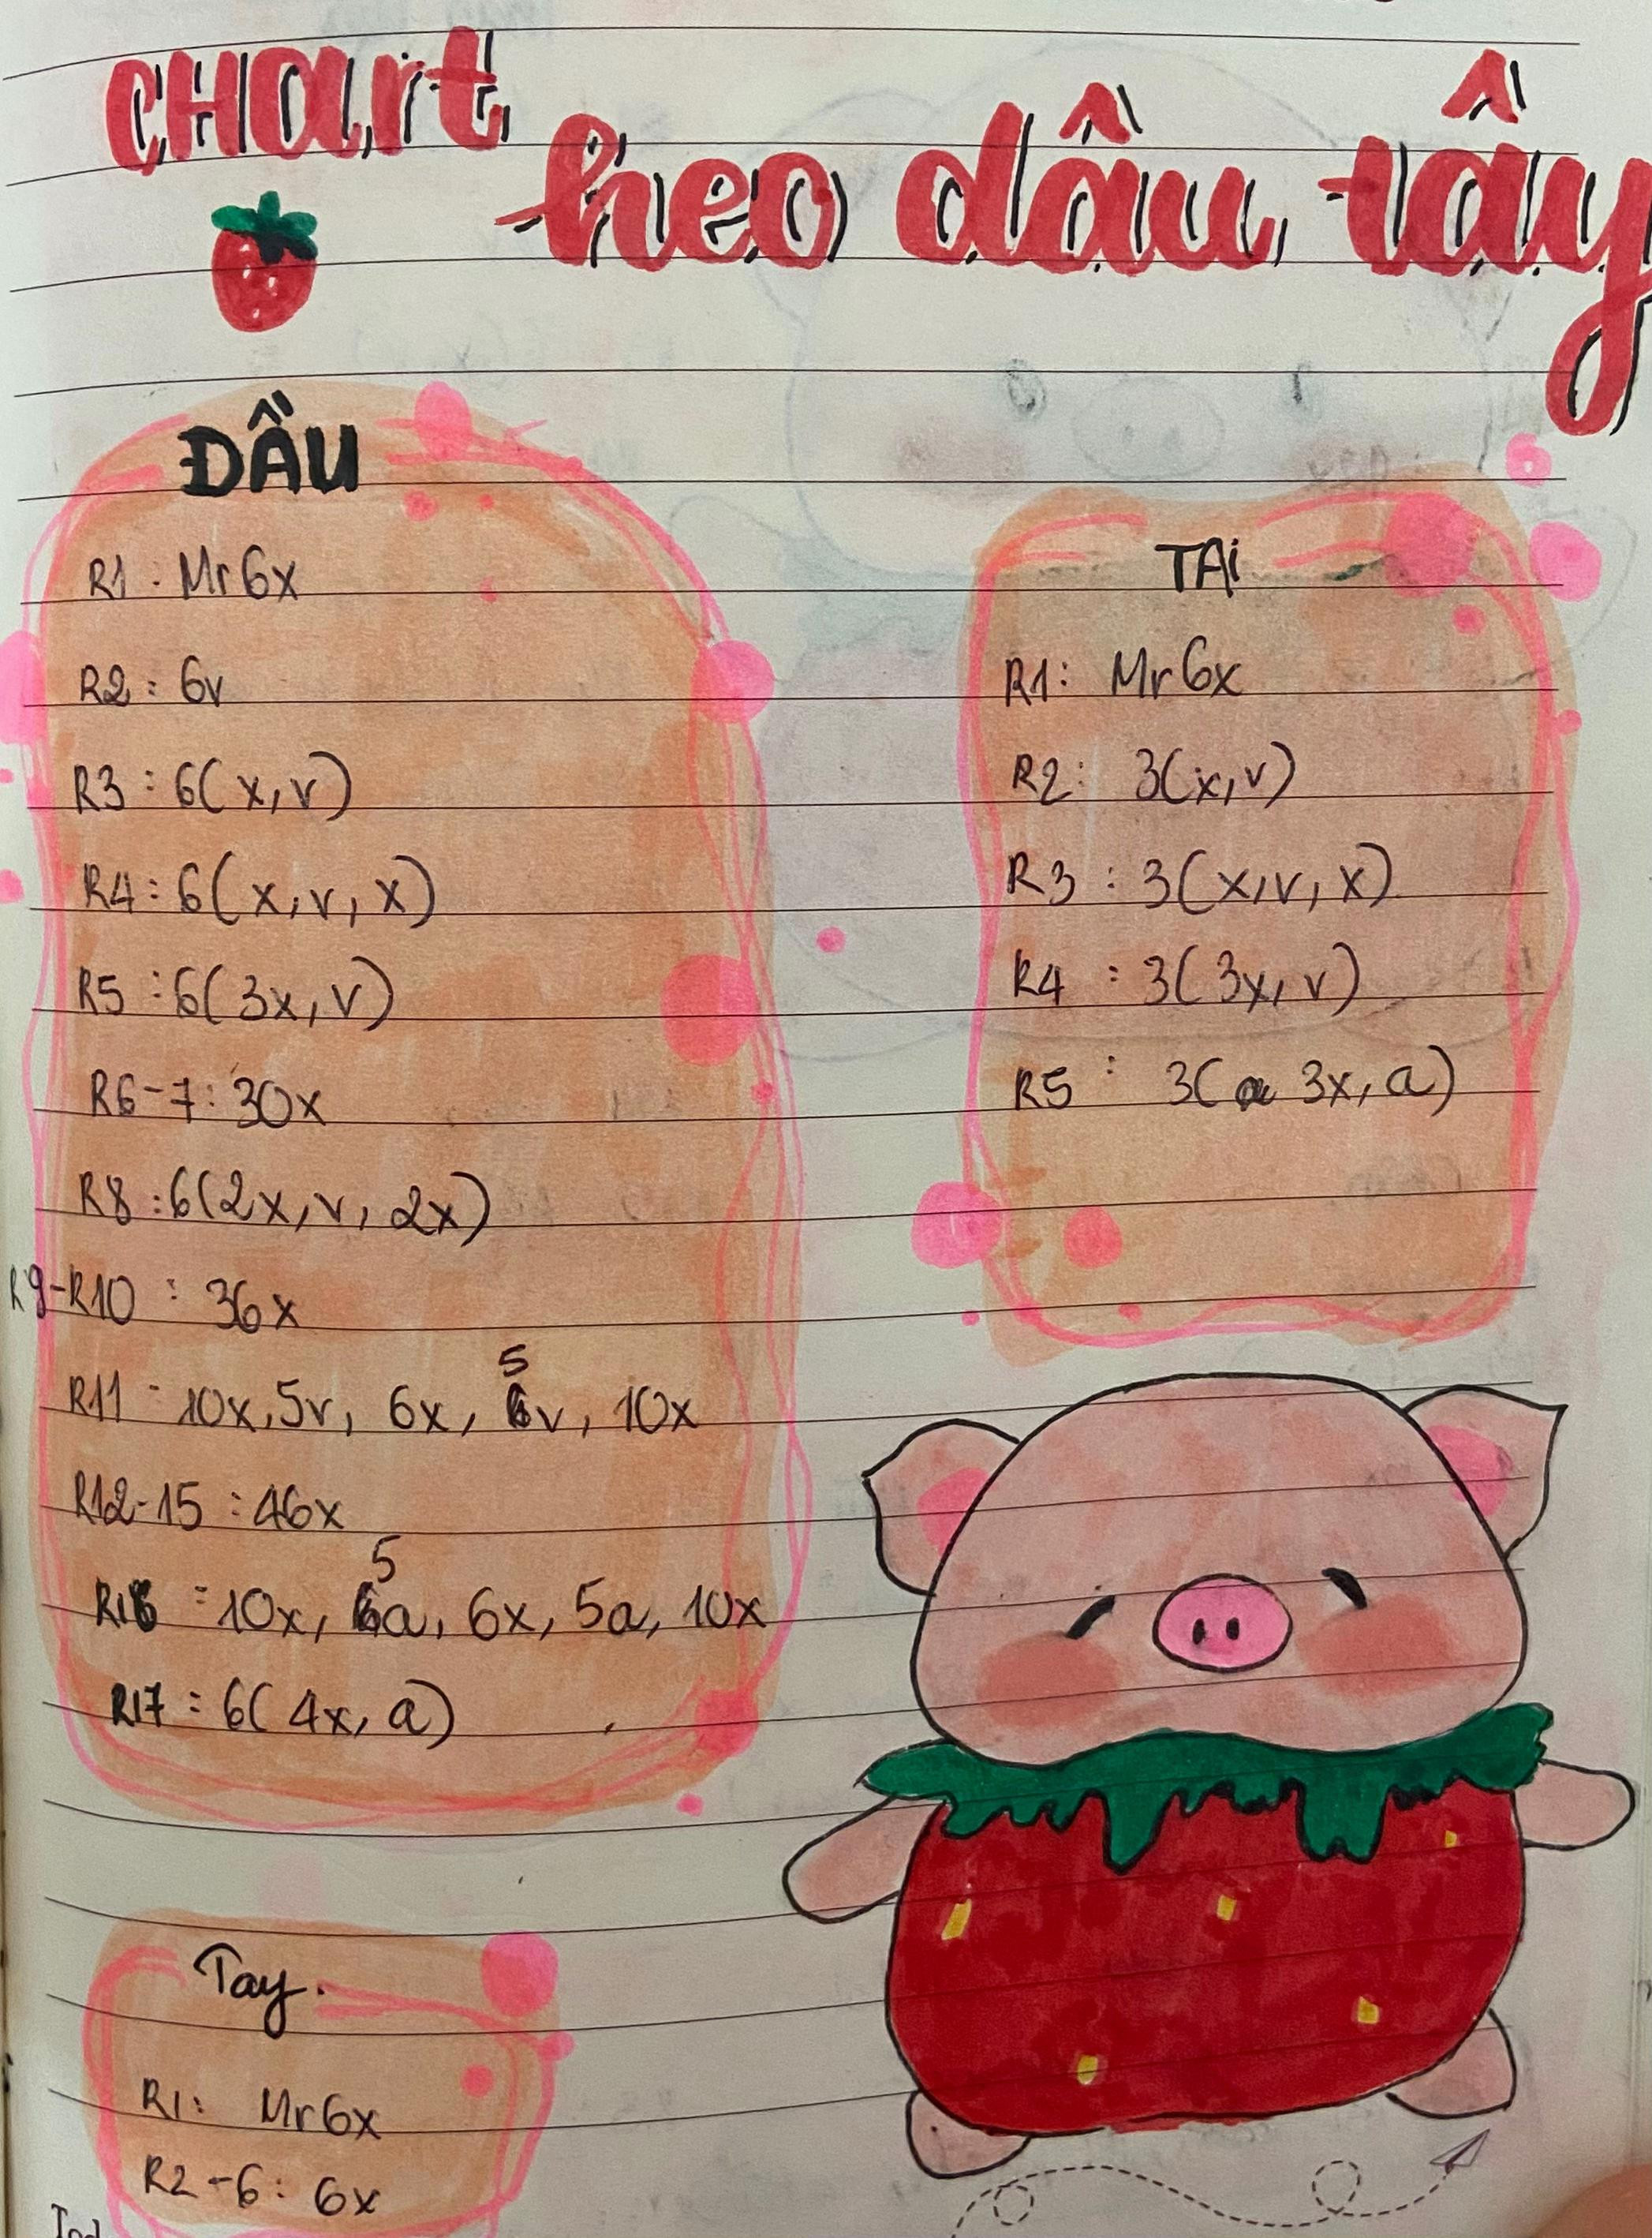 CHart
heo dâu tây
ĐẦU
R1: Mr6x
R2: 6v
R3: 6(x,v)
R4: 6(x,v,x)
R5: 6(3x,v)
R6-7: 30x
R8: 6(2x,v,2x)
R9-R10: 36x
R11: 10x,5v, 6x, 5v, 10x
R12-15: 46x
R16: 10x, 5a, 6x, 5a, 10x
R17: 6(4x,a)
TAi
R1: Mr6x
R2: 3(x,v)
R3: 3(x,v,x)
R4: 3(3x,v)
R5: 3(3x,a)
Tay.
R1: Mr6x
R2-6: 6x